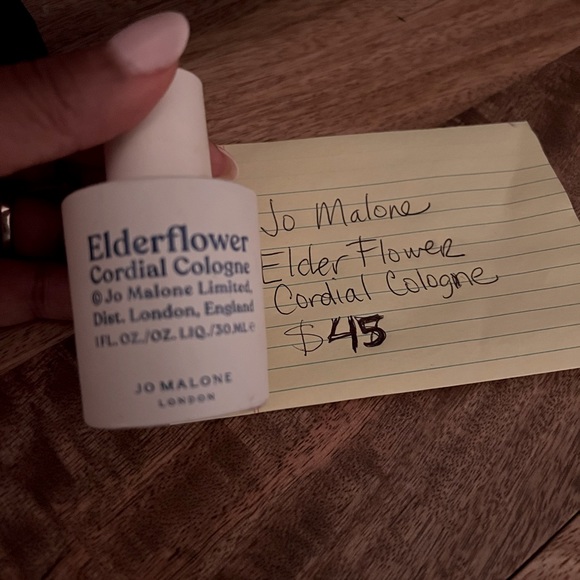 Elderflower
Cordial Cologne
© Jo Malone Limited,
Dist. London, England
1FL. OZ./OZ. LIQ./30ML e
JO MALONE
LONDON
Jo Malone
Elder Flower
Cordial Cologne
$45